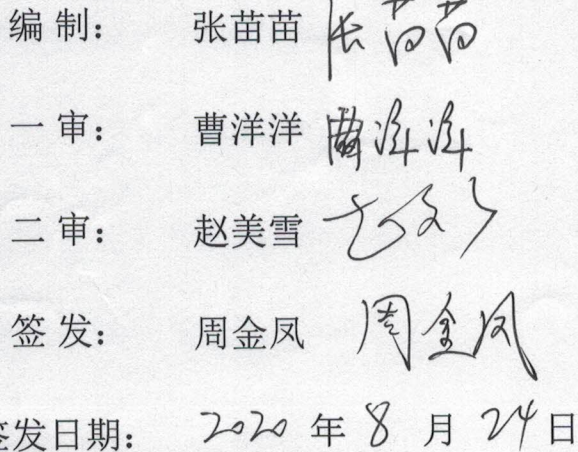 编 制： 张苗苗 张苗苗
一 审： 曹洋洋 曹洋洋
二 审： 赵美雪
签 发： 周金凤 周金凤
签发日期： 2020 年 8 月 24 日